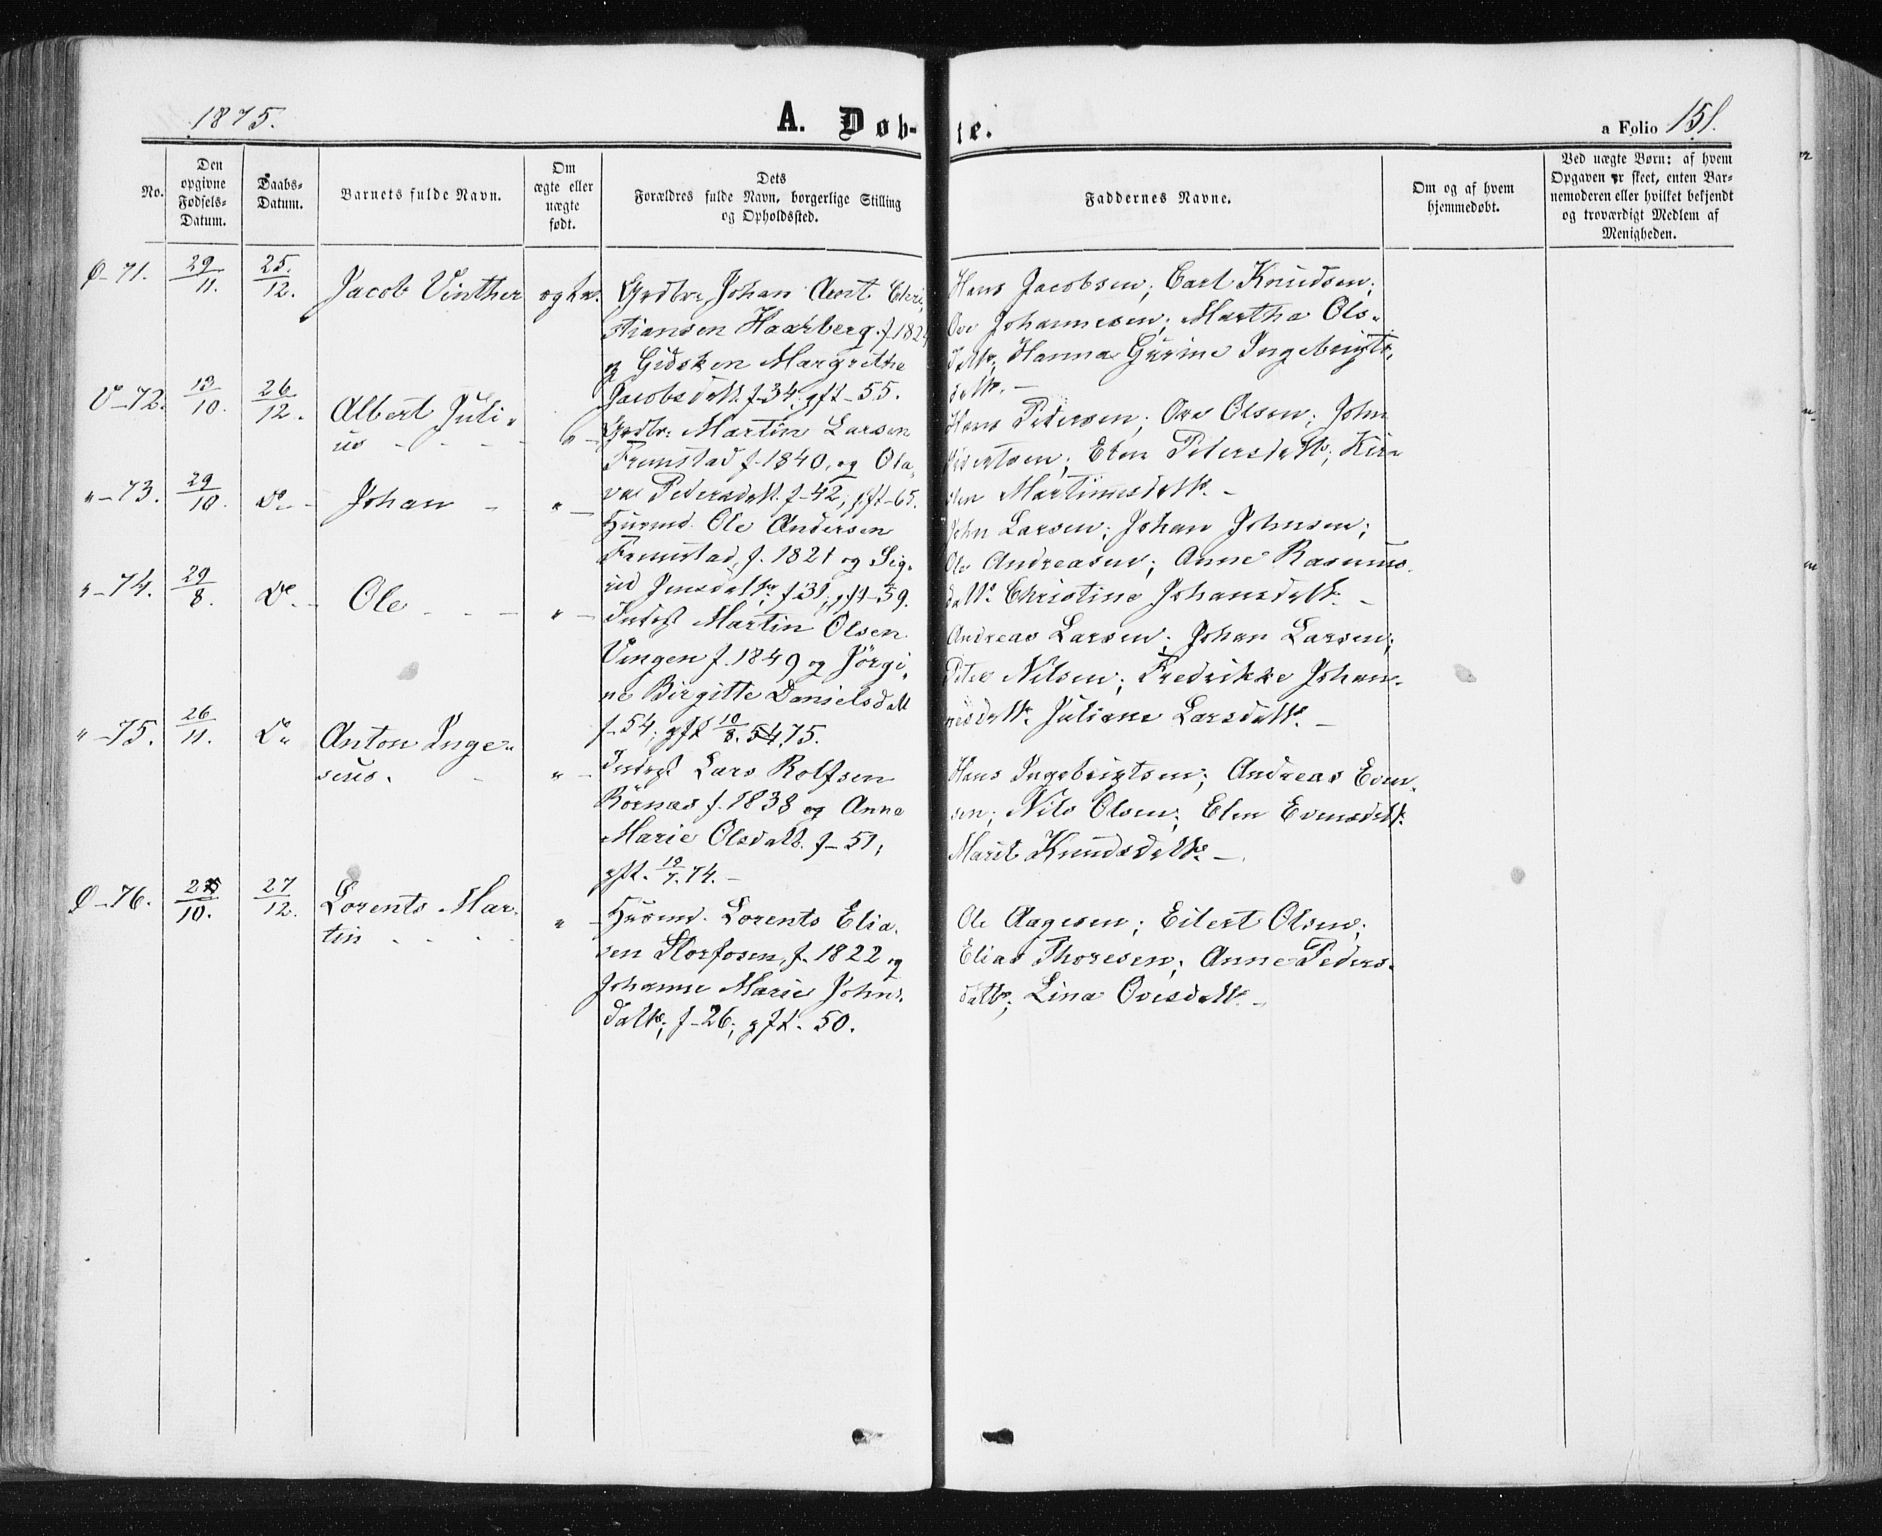 1875.
A. Døb-
te.
a Folio 151.
No.
Den opgivne Fødsels-Datum.
Daabs-Datum.
Barnets fulde Navn.
Om ægte eller uægte født.
Dets Forældres fulde Navn, borgerlige Stilling og Opholdssted.
Faddernes Navne.
Om og af hvem hjemmedøbt.
Ved uægte Børn: af hvem Opgaven er skeet, enten Barnemoderen eller hvilket bekjendt og troværdigt Medlem af Menigheden.
Ø-71. 29/11. 25/12. Jacob Vinther
Grdbr. Johan Arnt Chri-
stiansen Haarberg f. 182
og Gidsken Margrethe
Jacobsdatt. f-34; gft-55.
Hans Jacobsen; Carl Knudsen;
Ove Johannesen; Martha Ols-
datr. Hanna Gurine Ingebrigts-
datr. -
V-72. 13/10. 26/12. Albert Juli-
us - - - - " -
Grdbr. Martin Larsen
Fremstad f. 1840, og Ola-
va Pedersdatt. f-42; gft-65.
Hans Petersen; Ove Olsen; John
Elen Petersdatr; Kir-
sten Martinusdatr. -
"-73. 29/10. Do - Johan - " -
Husmd. Ole Andersen
Fremstad, f. 1821 og Sig-
rid Jensdatr, f-31; gft-59.
John Larsen; Johan Johnsen;
Ole Andreasen; Anne Rasmus-
datr. Christine Johansdatr. -
"-74. 29/8. Do - Ole - - - " -
Inderst Martin Olsen
Vingen f. 1849 og Jørgi-
ne Birgitte Danielsdatt
f-54; gft 10/8. 54, 75.
Andreas Larsen; Johan Larsen;
Peter Nilsen; Fredrikke Johan-
nesdatr. Juliane Larsdatr. -
"-75. 26/11. Do Anton Inge-
seus. - " -
Inderst Lars Rolfsen
Børnas f. 1838 og Anne
Marie Olsdatt. f-51;
gft. 10/7. 74. -
Hans Ingebrigtsen; Andreas Even-
sen; Nils Olsen; Elen Evensdatr.
Marit Knudsdatr. -
Ø-76. 25/10. 27/12. Lorents Mar-
tin - - - - " -
Husmd. Lorents Elia-
sen Storfosen, f. 1822 og
Johanne Marie Johns-
datr; f-26; gft. 50.
Ole Aagesen; Eilert Olsen;
Elias Thoresen; Anne Peders-
datr; Lina Ovesdatr. -